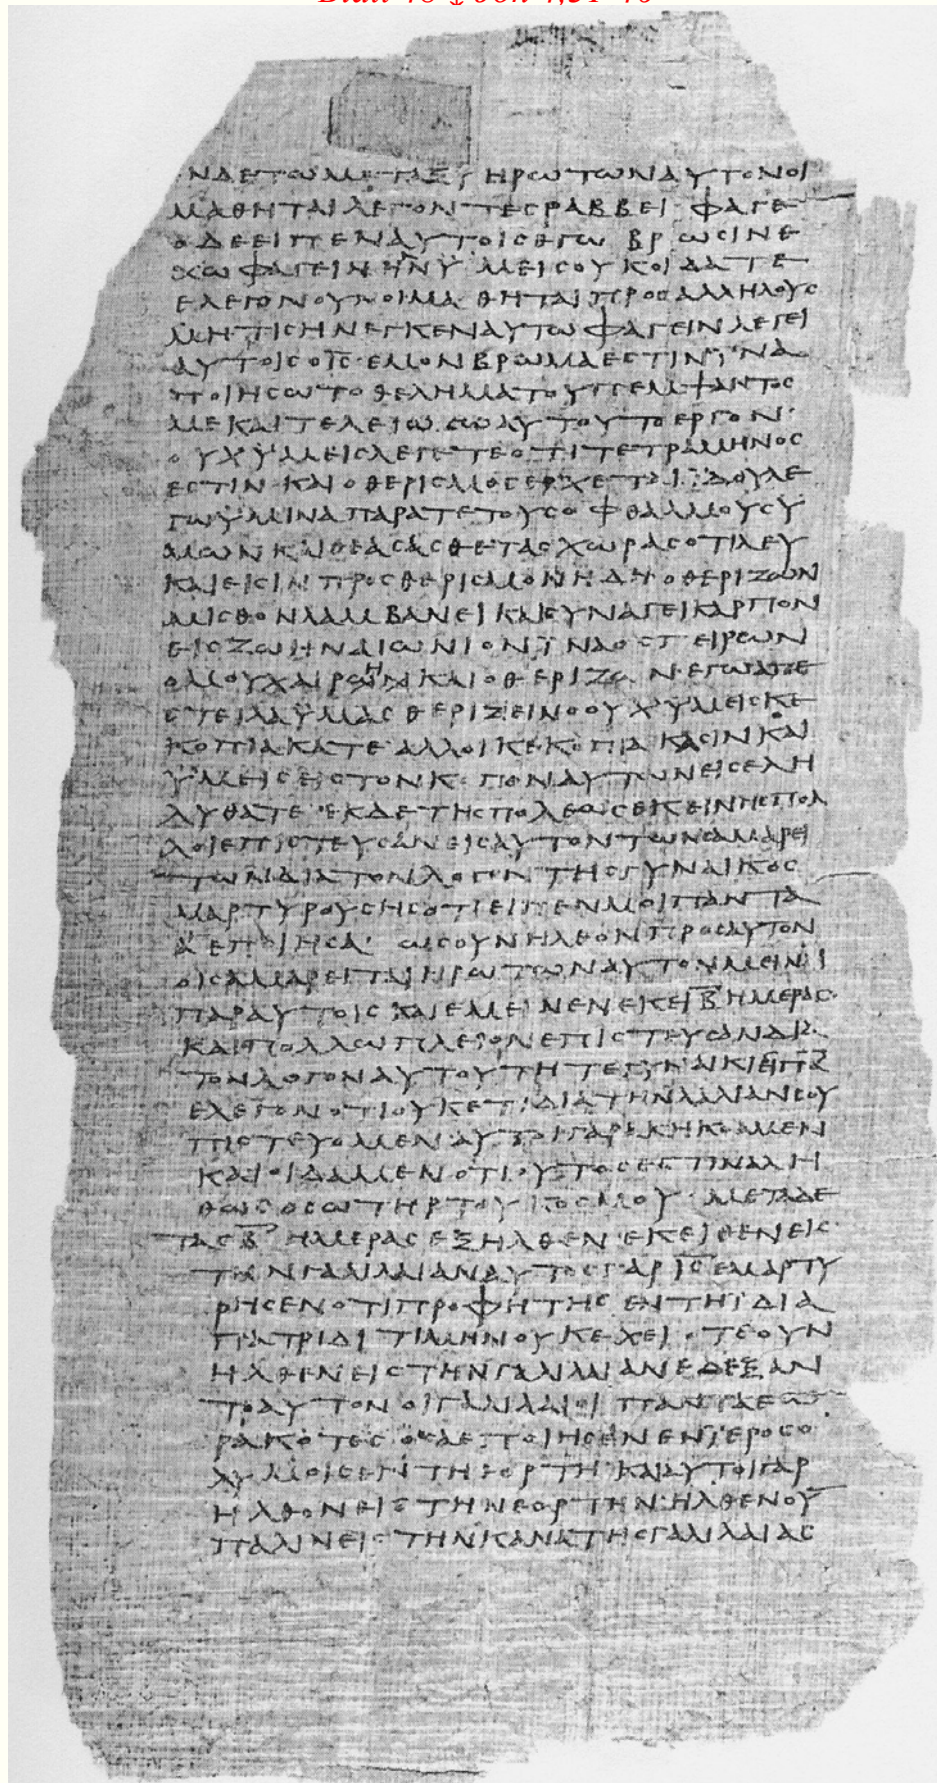 ΝΔΕΤΩΜΕΤΑΞΥΗΡΩΤΩΝΑΥΤΟΝΟΙ
ΜΑΘΗΤΑΙΛΕΓΟΝΤΕΣΡΑΒΒΕΙ·ΦΑΓΕ
ΟΔΕΕΙΠΕΝΑΥΤΟΙΣΕΓΩΒΡΩΣΙΝΕ
ΧΩΦΑΓΕΙΝΗΝΫΜΕΙΣΟΥΚΟΙΔΑΤΕ
ΕΛΕΓΟΝΟΥΝΟΙΜΑΘΗΤΑΙΠΡΟΣΑΛΛΗΛΟΥΣ
ΜΗΤΙΣΗΝΕΓΚΕΝΑΥΤΩΦΑΓΕΙΝΛΕΓΕΙ
ΑΥΤΟΙΣΟΙΣ·ΕΜΟΝΒΡΩΜΑΕΣΤΙΝΪΝΑ
ΠΟΙΗΣΩΤΟΘΕΛΗΜΑΤΟΥΠΕΜΨΑΝΤΟΣ
ΜΕΚΑΙΤΕΛΕΙΩΣΩΑΥΤΟΥΤΟΕΡΓΟΝ·
ΟΥΧΫΜΕΙΣΛΕΓΕΤΕΟΤΙΤΕΤΡΑΜΗΝΟΣ
ΕΣΤΙΝ·ΚΑΙΟΘΕΡΙΣΜΟΣΕΡΧΕΤΑΙΪΔΟΥΛΕ
ΓΩΫΜΙΝΑΠΑΡΑΤΕΤΟΥΣΟΦΘΑΛΜΟΥΣΥ
ΜΩΝΚΑΙΘΕΑΣΑΣΘΕΤΑΣΧΩΡΑΣΟΤΙΛΕΥ
ΚΑΙΕΙΣΙΝΠΡΟΣΘΕΡΙΣΜΟΝΗΔΗ·ΟΘΕΡΙΖΩΝ
ΜΙΣΘΟΝΛΑΜΒΑΝΕΙΚΑΙΣΥΝΑΓΕΙΚΑΡΠΟΝ
ΕΙΣΖΩΗΝΑΙΩΝΙΟΝΪΝΑΟΣΠΕΙΡΩΝ
ΟΜΟΥΧΑΙΡΗΚΑΙΟΘΕΡΙΖΩΝ·ΕΓΩΑΠΕ
ΣΤΕΙΛΑΫΜΑΣΘΕΡΙΖΕΙΝΟΟΥΧΫΜΕΙΣΚΕ
ΚΟΠΙΑΚΑΤΕΑΛΛΟΙΚΕΚΟΠΙΑΚΑΣΙΝΚΑΙ
ΫΜΕΙΣΕΙΣΤΟΝΚΟΠΟΝΑΥΤΩΝΕΙΣΕΛΗ
ΛΥΘΑΤΕ·ΕΚΔΕΤΗΣΠΟΛΕΩΣΕΚΕΙΝΗΣΠΟΛ
ΛΟΙΕΠΙΣΤΕΥΣΑΝΕΙΣΑΥΤΟΝΤΩΝΣΑΜΑΡΕΙ
ΤΩΝΔΙΑΤΟΝΛΟΓΟΝΤΗΣΓΥΝΑΙΚΟΣ
ΜΑΡΤΥΡΟΥΣΗΣΟΤΙΕΙΠΕΝΜΟΙΠΑΝΤΑ
ΑΕΠΟΙΗΣΑ·ΩΣΟΥΝΗΛΘΟΝΠΡΟΣΑΥΤΟΝ
ΟΙΣΑΜΑΡΕΙΤΑΙΗΡΩΤΩΝΑΥΤΟΝΜΕΙΝΑΙ
ΠΑΡΑΥΤΟΙΣΚΑΙΕΜΕΙΝΕΝΕΚΕΙΒ̅ΗΜΕΡΑΣ·
ΚΑΙΠΟΛΛΩΠΛΕΙΟΝΕΠΙΣΤΕΥΣΑΝΔΙΑ
ΤΟΝΛΟΓΟΝΑΥΤΟΥΤΗΤΕΓΥΝΑΙΚΙ
ΕΛΕΓΟΝΟΤΙΟΥΚΕΤΙΔΙΑΤΗΝΛΑΛΙΑΝΣΟΥ
ΠΙΣΤΕΥΟΜΕΝΑΥΤΟΙΓΑΡΑΚΗΚΟΑΜΕΝ
ΚΑΙΟΙΔΑΜΕΝΟΤΙΟΥΤΟΣΕΣΤΙΝΑΛΗ
ΘΩΣΟΣΩΤΗΡΤΟΥΚΟΣΜΟΥ·ΜΕΤΑΔΕ
ΤΑΣΒ̅ΗΜΕΡΑΣΕΞΗΛΘΕΝΕΚΕΙΘΕΝΕΙΣ
ΤΗΝΓΑΛΙΛΑΙΑΝΑΥΤΟΣΓΑΡΙ̅Σ̅ΕΜΑΡΤΥ
ΡΗΣΕΝΟΤΙΠΡΟΦΗΤΗΣΕΝΤΗΪΔΙΑ
ΠΑΤΡΙΔΙΤΙΜΗΝΟΥΚΕΧΕΙΟΤΕΟΥΝ
ΗΛΘΕΝΕΙΣΤΗΝΓΑΛΙΛΑΙΑΝΕΔΕΞΑΝ
ΤΟΑΥΤΟΝΟΙΓΑΛΙΛΑΙΟΙΠΑΝΤΑΕΩ
ΡΑΚΟΤΕΣΟΣΑΕΠΟΙΗΣΕΝΕΝΪΕΡΟΣΟ
ΛΥΜΟΙΣΕΝΤΗΕΟΡΤΗΚΑΙΑΥΤΟΙΓΑΡ
ΗΛΘΟΝΕΙΣΤΗΝΕΟΡΤΗΝ·ΗΛΘΕΝΟΥ̅
ΠΑΛΙΝΕΙΣΤΗΝΚΑΝΑΤΗΣΓΑΛΙΛΑΙΑΣ